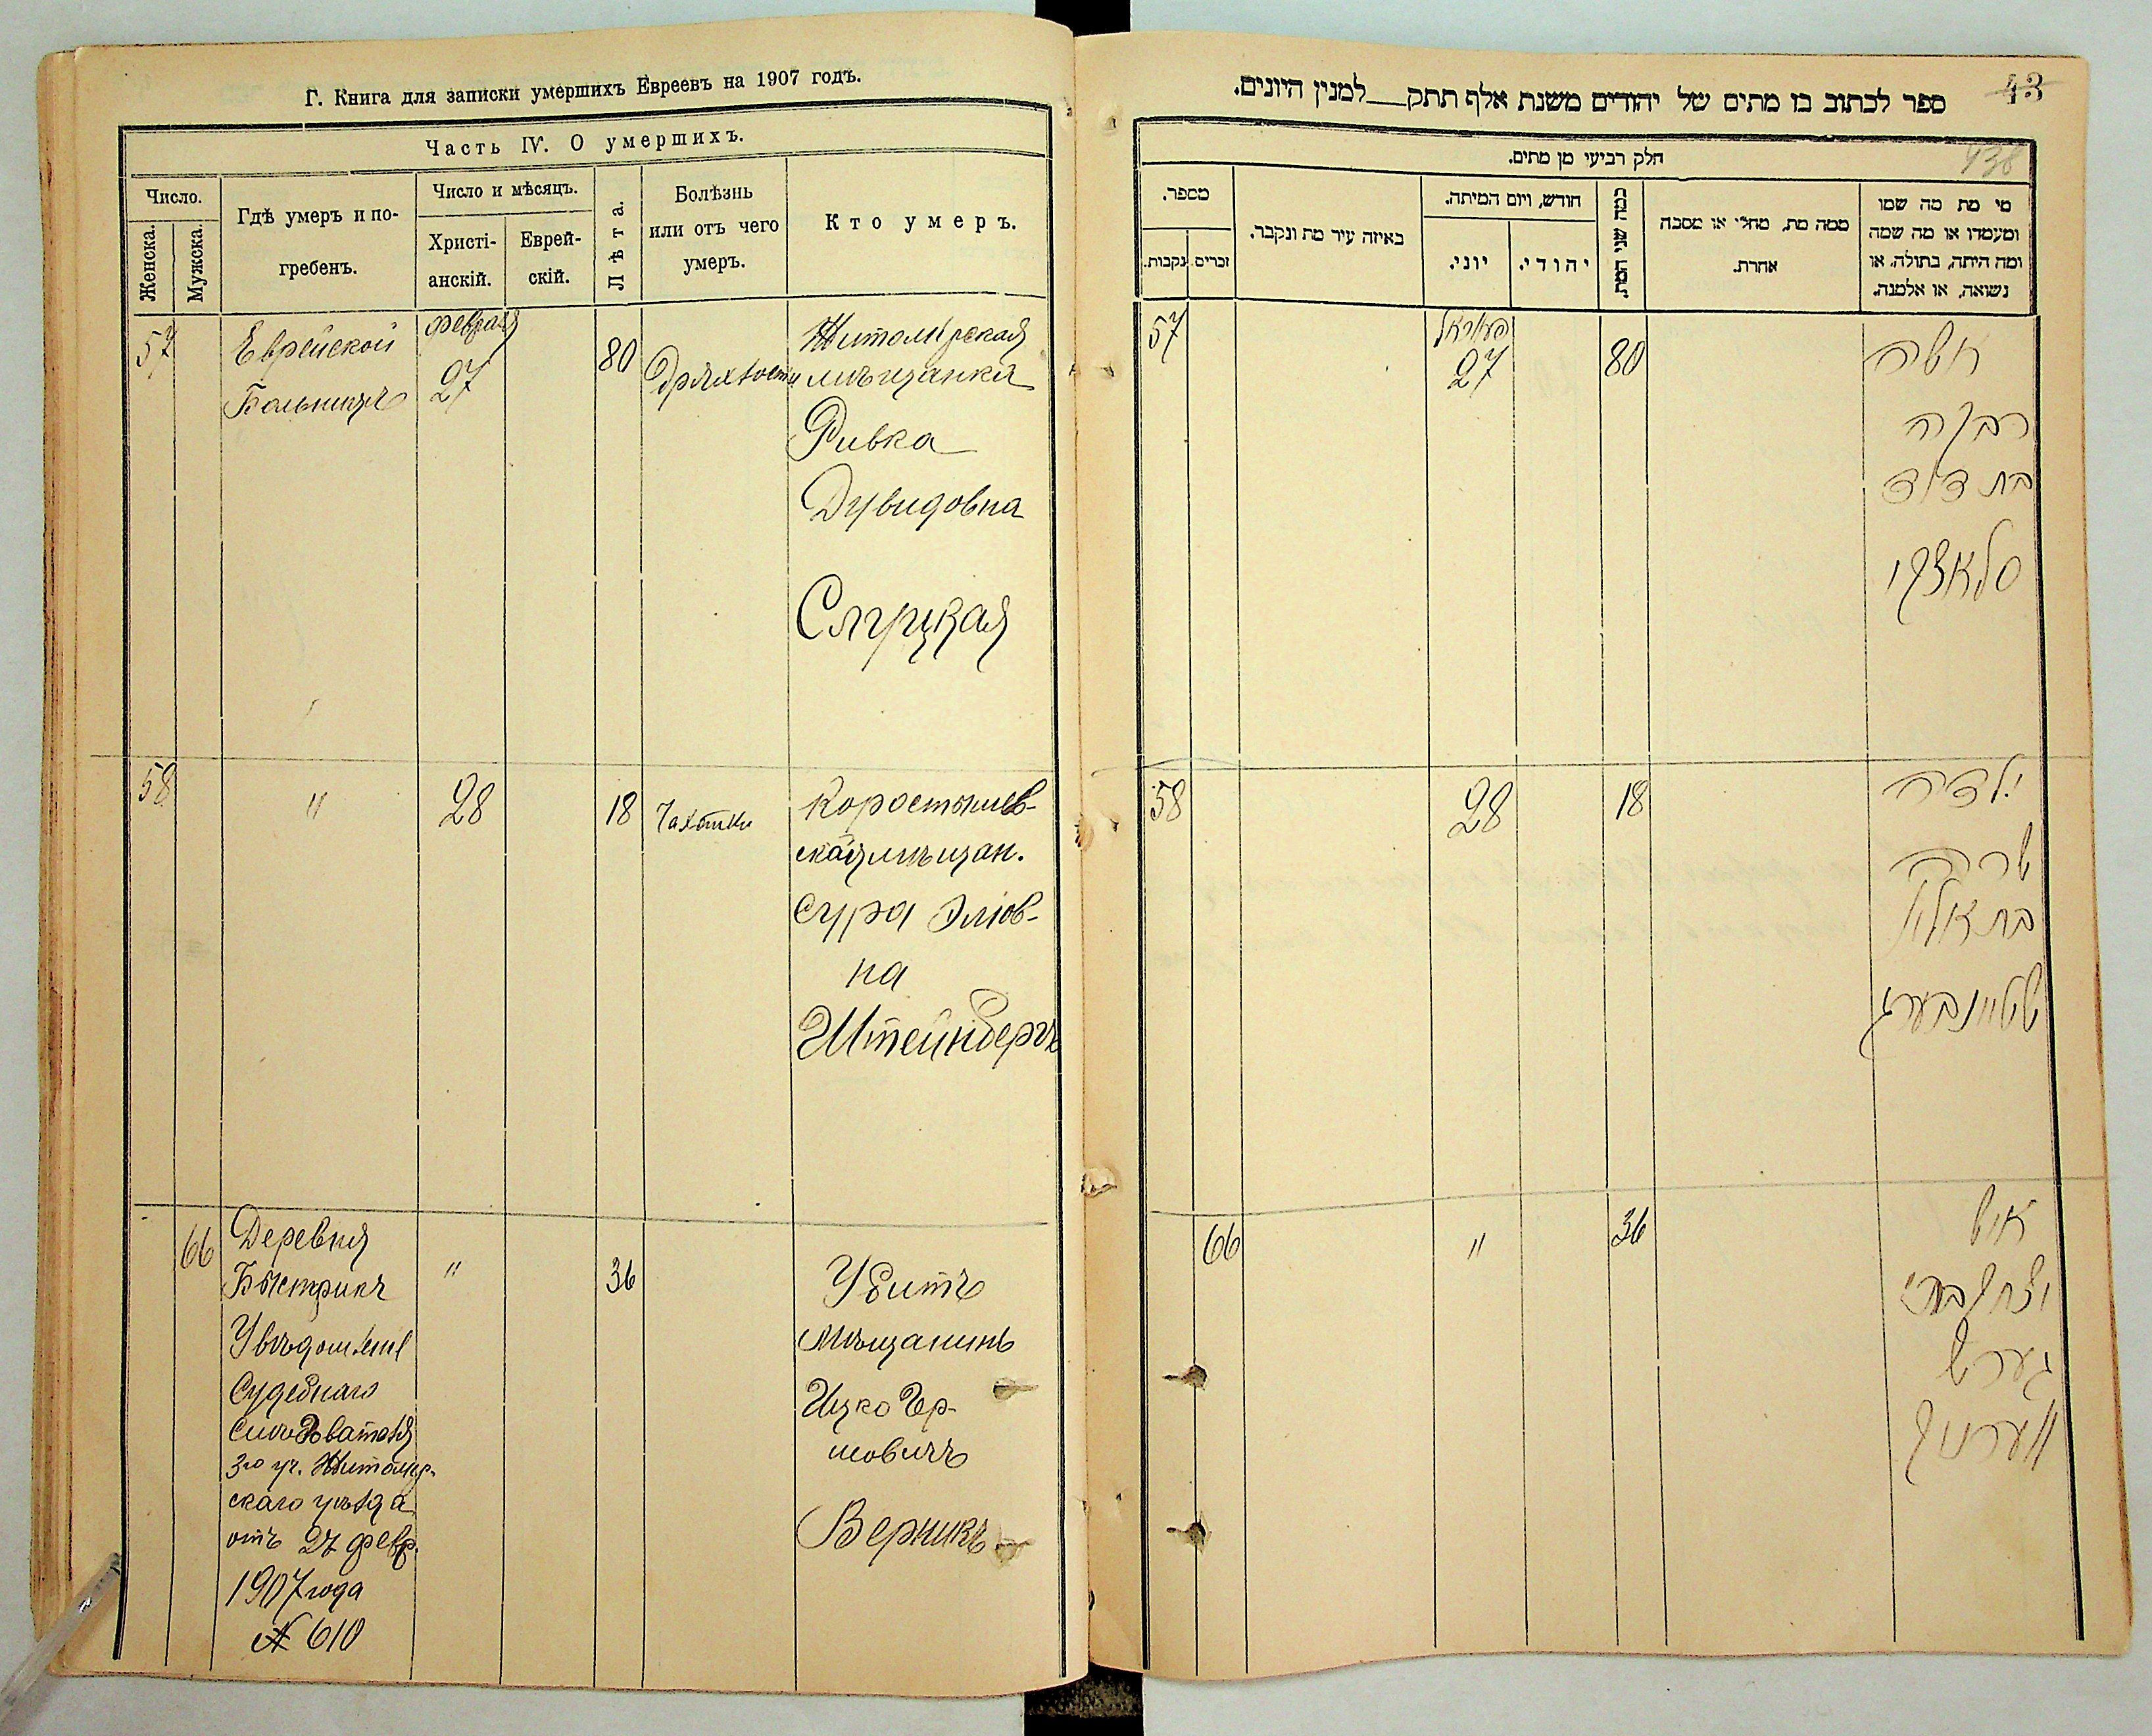 Г. Книга для записки умершихъ Евреевъ на 1907 годъ.
Часть IV. О умершихъ.
Число.
Женска.
Мужска.
Гдѣ умеръ и по-
гребенъ.
Число и мѣсяцъ.
Христі-
анскій.
Еврей-
скій.
Лѣта.
Болѣзнь
или отъ чего
умеръ.
Кто умеръ.
57
Еврейской
Больницѣ
февраля
27
80
Дряхлости
Житомірская
мѣщанка
Ривка
Дувидовна
Слуцкая
58
"
28
18
Чахотки
Коростышев-
ская мѣщан.
Сура Эліов-
на
Штейнбергъ
66
Деревня
Быстрикъ
Увѣдомленіе
Судебнаго
Слѣдователя
3го уч. Житомир-
скаго уѣзда
отъ 27 февр.
1907 года
№ 610
"
36
Убитъ
Мѣщанинъ
Ицко Гер-
шовичъ
Верникъ
43
438
ספר לכתוב בו מתים של יהודים משנת אלף תתק__למנין היונים.
חלק רביעי מן מתים.
מספר.
נקבות.
זכרים.
באיזה עיר מת ונקבר.
חודש, ויום המיתה.
יוני.
יהודי.
כמה שני המת.
ממה מת, מחלי או מסבה
אחרת.
מי מת מה שמו
ומעמדו או מה שמה
ומה היתה, בתולה, או
נשואה, או אלמנה.
57
27
80
אשה
רבקה
בת דוד
סלאצקי
58
28
18
ילדה
שרה
בת אלי'
שטיינבערג
66
"
36
איש
יצחק
גערש
ווערניק